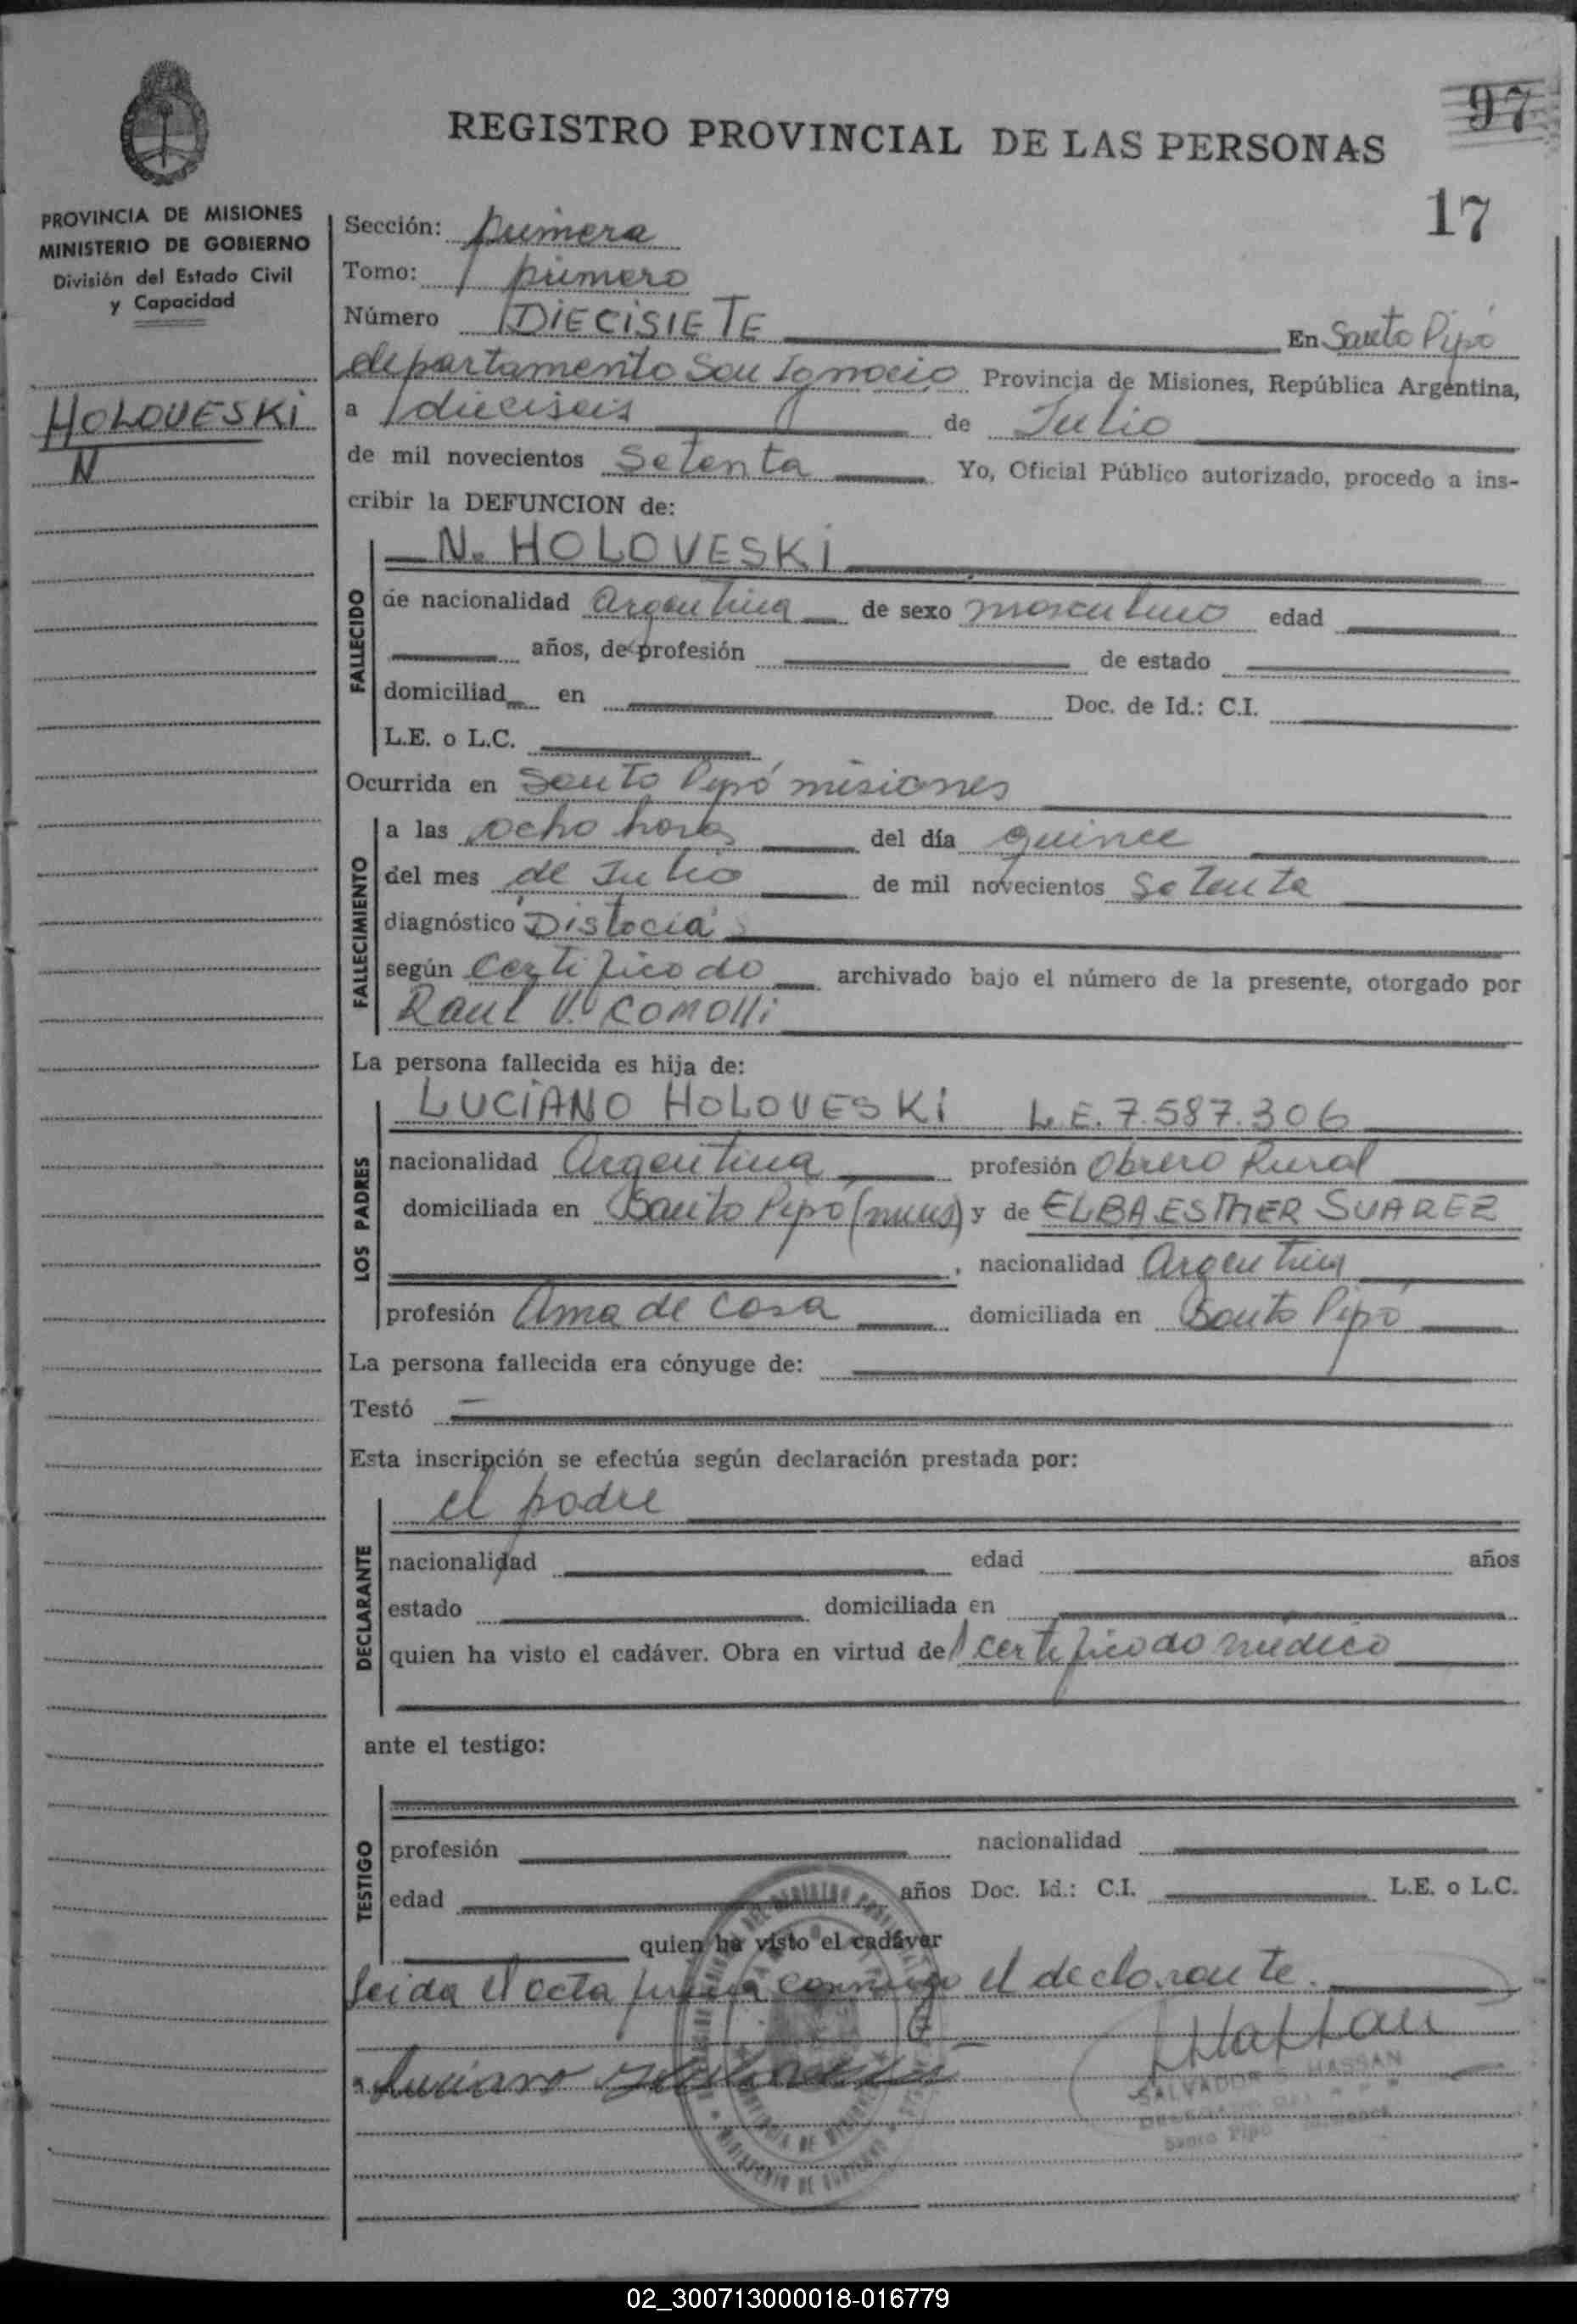 REGISTRO PROVINCIAL DE LAS PERSONAS
97
17
PROVINCIA DE MISIONES
MINISTERIO DE GOBIERNO
División del Estado Civil
y Capacidad
HOLOVESKI
N
Sección: primera
Tomo: primero
Número DIECISIETE En Santo Pipó
departamento San Ignacio Provincia de Misiones, República Argentina,
a dieciseis de Julio
de mil novecientos Setenta Yo, Oficial Público autorizado, procedo a ins-
cribir la DEFUNCION de:
N. HOLOVESKI
FALLECIDO
de nacionalidad Argentina de sexo masculino edad
años, de profesión de estado
domiciliad en Doc. de Id.: C.I.
L.E. o L.C.
Ocurrida en Santo Pipó misiones
FALLECIMIENTO
a las ocho horas del día quince
del mes de Julio de mil novecientos Setenta
diagnóstico Distocia
según Certificado archivado bajo el número de la presente, otorgado por
Raul V. COMOLLi
La persona fallecida es hija de:
LOS PADRES
LUCIANO HOLOVESKI L.E. 7.587.306
nacionalidad Argentina profesión Obrero Rural
domiciliada en Santo Pipó (mnes) y de ELBA ESTHER SUAREZ
, nacionalidad Argentina
profesión Ama de Casa domiciliada en Santo Pipó
La persona fallecida era cónyuge de:
Testó
Esta inscripción se efectúa según declaración prestada por:
DECLARANTE
el padre
nacionalidad edad años
estado domiciliada en
quien ha visto el cadáver. Obra en virtud del certificado medico
ante el testigo:
TESTIGO
profesión nacionalidad
edad años Doc. Id.: C.I. L.E. o L.C.
quien ha visto el cadáver
leida el acta firma conmigo el declarante.
Luciano
SALVADOR HASSAN
Santo Pipó
02_300713000018-016779